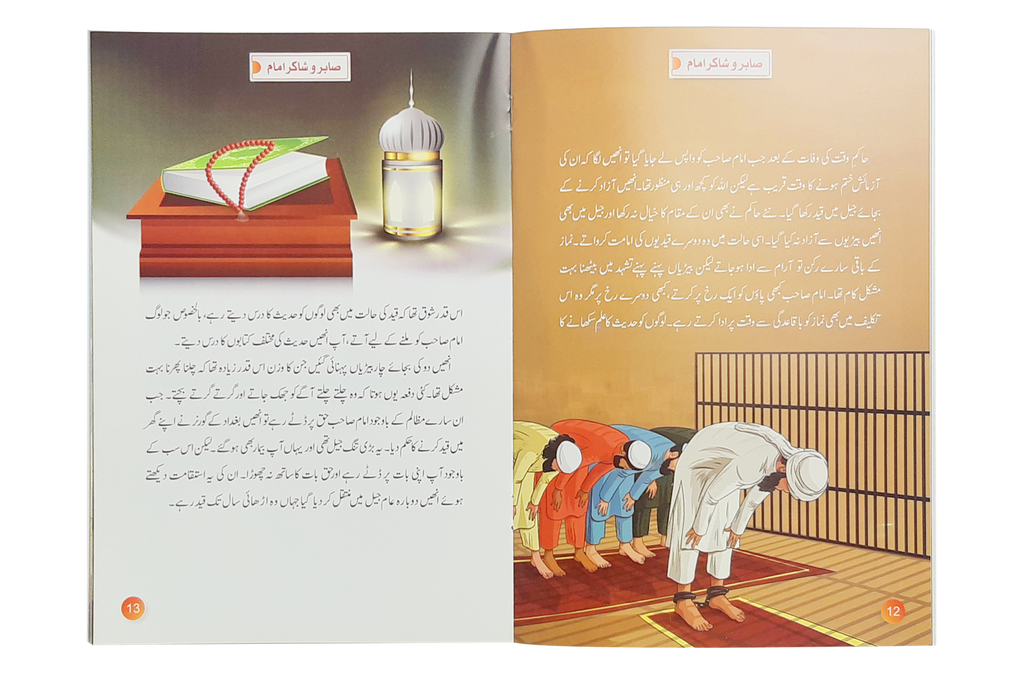 صابر و شاکر امام
حاکمِ وقت کی وفات کے بعد جب امام صاحب کو واپس لے جایا گیا تو انھیں لگا کہ ان کی
آزمائش ختم ہونے کا وقت قریب ہے لیکن اللہ کو کچھ اور ہی منظور تھا۔ انھیں آزاد کرنے کے
بجائے جیل میں قید رکھا گیا۔ نئے حاکم نے بھی ان کے مقام کا خیال نہ رکھا اور جیل میں بھی
انھیں بیڑیوں سے آزاد نہ کیا گیا۔ اسی حالت میں وہ دوسرے قیدیوں کی امامت کرواتے۔ نماز
کے باقی سارے رکن تو آرام سے ادا ہو جاتے لیکن بیڑیاں پہنے پہنے تشہد میں بیٹھنا بہت
مشکل کام تھا۔ امام صاحب کبھی پاؤں کو ایک رخ پر کرتے، کبھی دوسرے رخ پر مگر وہ اس
تکلیف میں بھی نماز کو باقاعدگی سے وقت پر ادا کرتے رہے۔ لوگوں کو حدیث کا علم سکھانے کا
12
صابر و شاکر امام
اس قدر شوق تھا کہ قید کی حالت میں بھی لوگوں کو حدیث کا درس دیتے رہے، بالخصوص جو لوگ
امام صاحب کو ملنے کے لیے آتے، آپ انھیں حدیث کی مختلف کتابوں کا درس دیتے۔
انھیں دو کی بجائے چار بیڑیاں پہنائی گئیں جن کا وزن اس قدر زیادہ تھا کہ چلنا پھرنا بہت
مشکل تھا۔ کئی دفعہ یوں ہوتا کہ وہ چلتے چلتے آگے کو جھک جاتے اور گرتے گرتے بچتے۔ جب
ان سارے مظالم کے باوجود امام صاحب حق پر ڈٹے رہے تو انھیں بغداد کے گورنر نے اپنے گھر
میں قید کرنے کا حکم دیا۔ یہ بڑی تنگ جیل تھی اور یہاں آپ بیمار بھی ہو گئے۔ لیکن اس سب کے
باوجود آپ اپنی بات پر ڈٹے رہے اور حق بات کا ساتھ نہ چھوڑا۔ ان کی یہ استقامت دیکھتے
ہوئے انھیں دوبارہ عام جیل میں منتقل کر دیا گیا جہاں وہ اڑھائی سال تک قید رہے۔
13